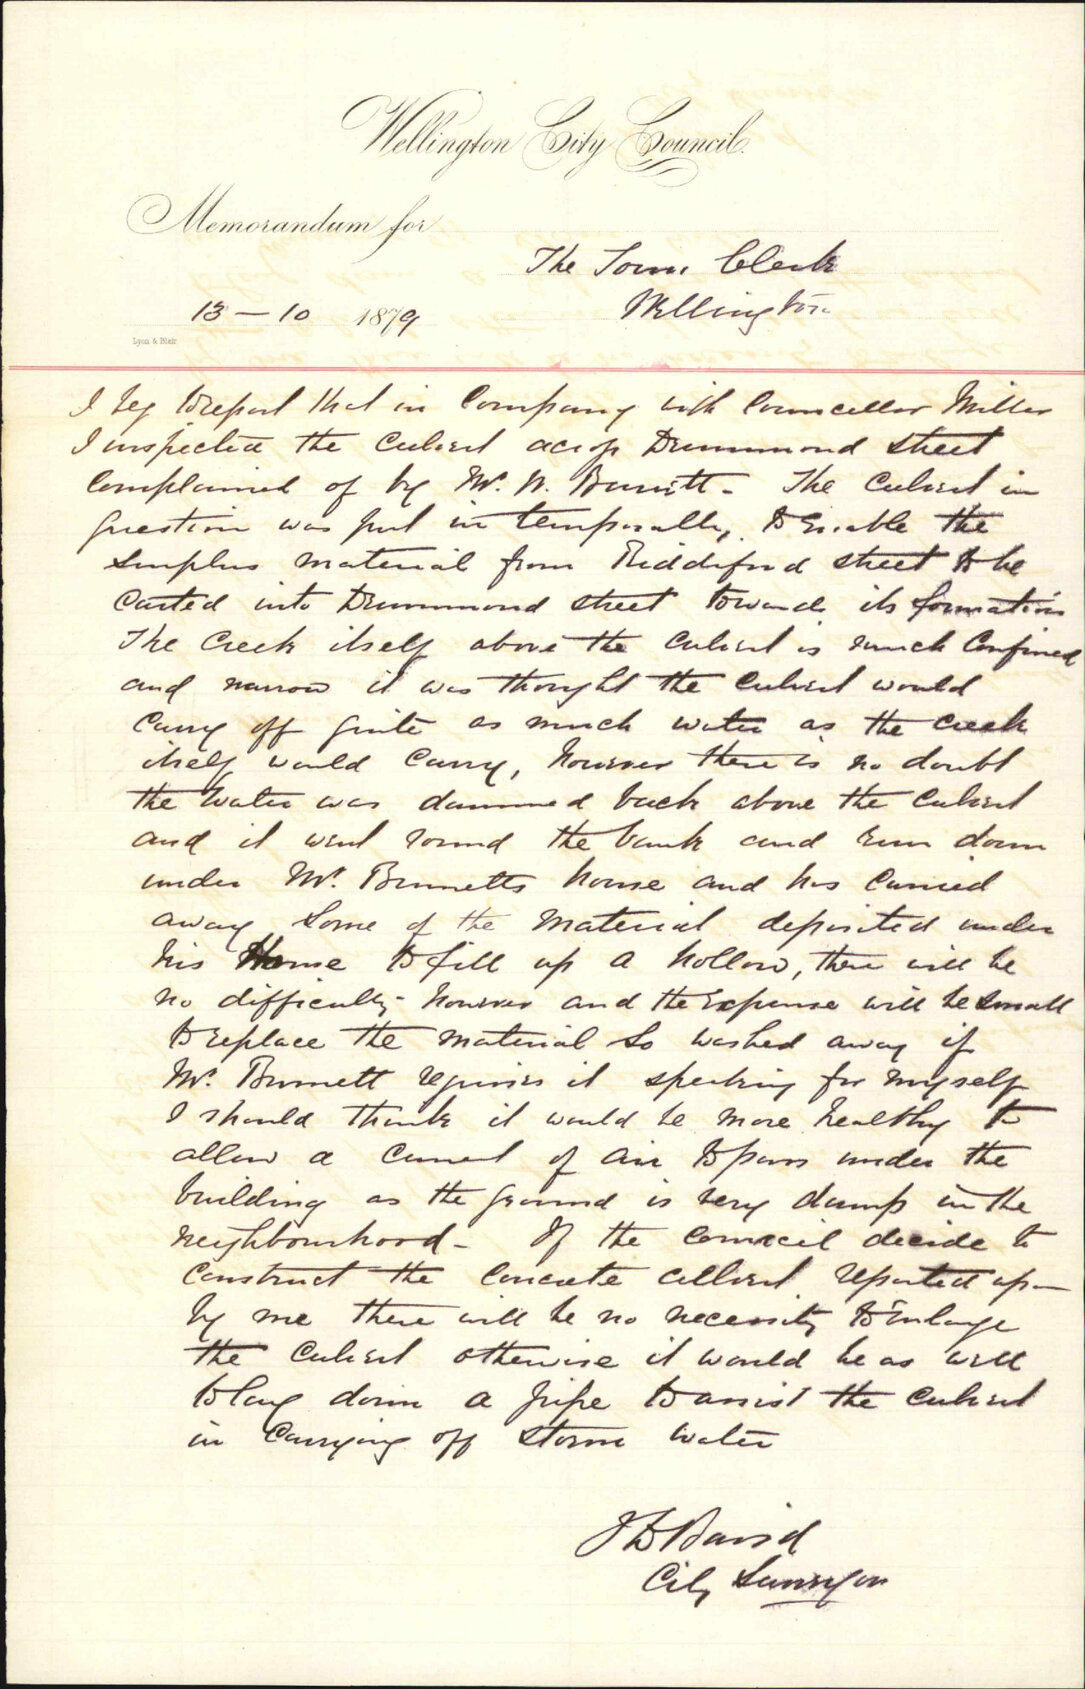 Wellington City Council.
Memorandum for
The Town Clerk
Wellington
13 – 10 1879
Lyon & Blair
I beg to report that in Company with Councellor Miller
I inspected the Culvert across Drummond street
Complained of by Mr. W. Burnett – The Culvert in
question was put in temporally, to Enable the
surplus material from Riddiford street to be
Carted into Drummond street towards its formation
The Creek itself above the Culvert is much Confined
and narrow it was thought the Culvert would
Carry off quite as much water as the creek
itself would Carry, however there is no doubt
the water was dammed back above the Culvert
and it went round the bank and run down
under Mr. Burnetts house and has Carried
away Some of the Material deposited under
his House to fill up a hollow, there will be
no difficulty however and the Expense will be Small
to replace the material so washed away if
Mr. Burnett requires it speaking for myself
I should think it would be more healthy to
allow a Current of air to pass under the
building as the ground is very damp in the
neighbourhood – If the Council decide to
Construct the Concrete Culvert reported upon
by me there will be no necessity to Enlarge
the Culvert otherwise it would be as well
to lay down a pipe to assist the Culvert
in Carrying off storm water
J D Baird
City Surveyor